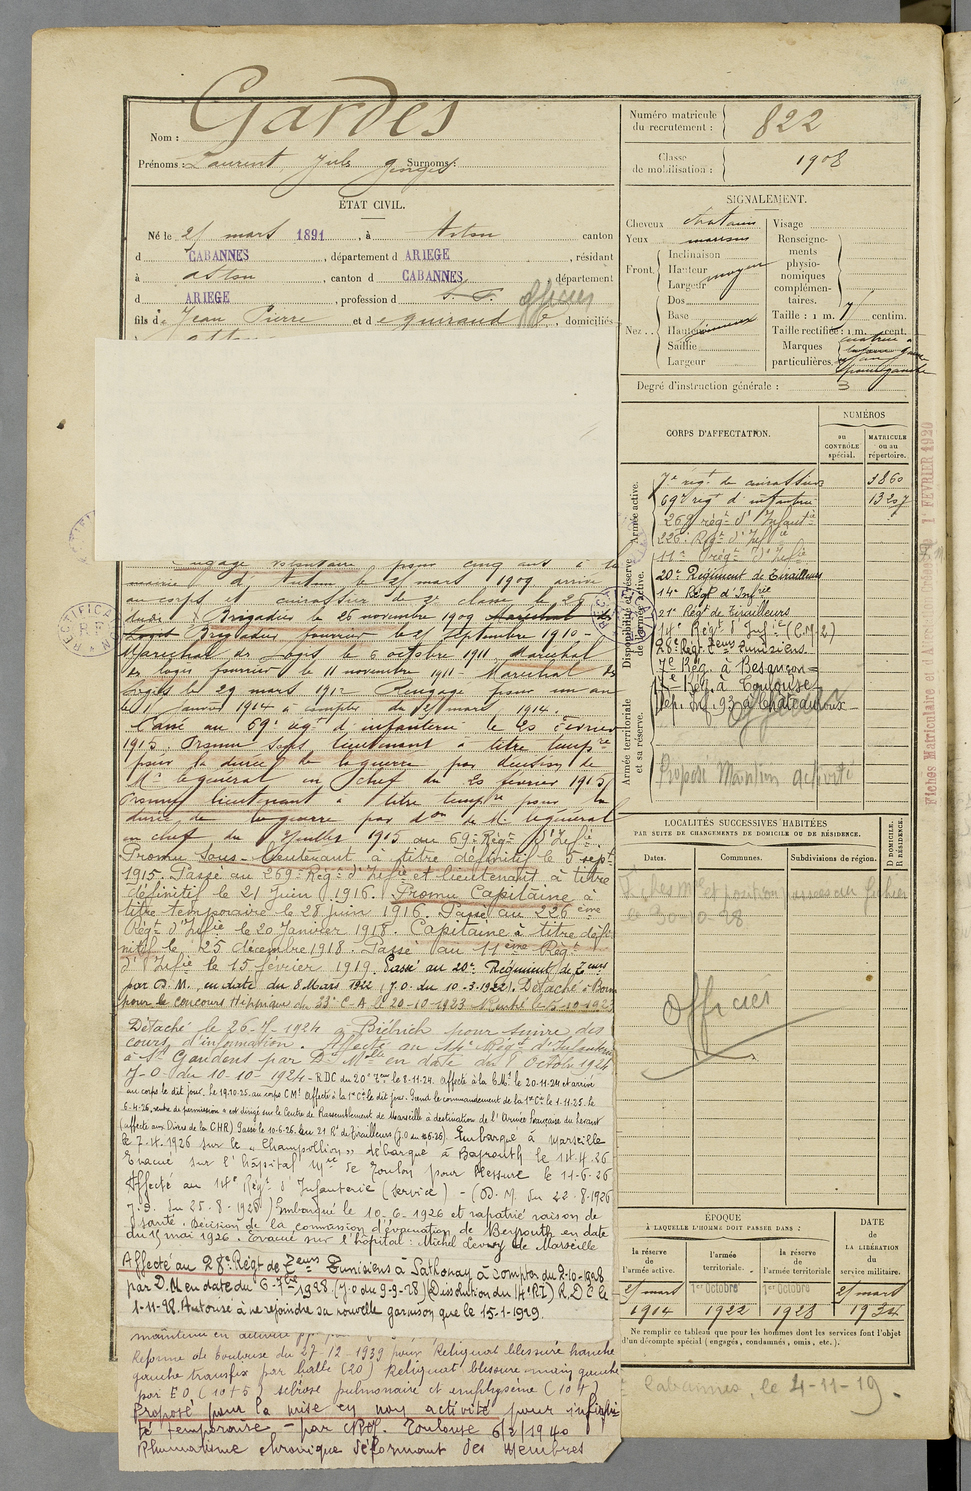 Gardes
Nom :
Prénoms : Laurent, Jules Georges Surnoms :
ÉTAT CIVIL.
Né le 25 mars 1891, à Aston canton
d CABANNES, département d ARIEGE, résidant
à Aston, canton d CABANNES, département
d ARIEGE, profession d S. P. officier
fils de Jean Pierre et de Guiraud, domiciliés
Engagé volontaire pour cinq ans à la
mairie d'Autun le 25 mars 1909 arrivé
au corps et cuirassier de 2e classe le 26
dudit. Brigadier le 26 novembre 1909 Maréchal des
Logis Brigadier fourrier le 25 septembre 1910 -
Maréchal des Logis le 6 octobre 1911 Maréchal
des logis fourrier le 11 novembre 1911 - Maréchal des
Logis le 29 mars 1912 Rengagé pour un an
le 1 janvier 1914 à compter du 25 mars 1914.
Passé au 69e régt d'infanterie le 20 février
1915, Promu sous lieutenant à titre tempre
pour la durée de la guerre par décision de
Mr le général en chef du 20 février 1915
Promu lieutenant à titre tempre pour la
durée de la guerre par don de Mr le général
en chef du Juillet 1915 au 69e Régt d'Infie.
Promu Sous-Lieutenant à titre définitif le 5 sept.
1915. Passé au 269e Régt d'Infie et lieutenant à titre
définitif le 21 Juin 1916. Promu Capitaine à
titre temporaire le 28 juin 1916. Passé au 226 ème
Régt d'Infie le 20 Janvier 1918. Capitaine à titre défi-
nitif le 25 décembre 1918. Passé au 11ème Régt
d'Infie le 15 février 1919. Passé au 20e Régiment de Teurs
par D. M. en date du 8 Mars 1922 (J.O. du 10-3-1922). Détaché à
pour le concours Hippique du 23e C-A le 20-10-1923 Rentré le
Détaché le 26-7-1924 à Bietrich pour suivre des
cours d'information. Affecté au 14e Régt d'Infanterie
à St Gaudens par Don Mlle en date du 8 Octobre 1924
J-O- du 10-10-1924 - RDC du 20e Teur le 8-11-24. Affecté à la CMt le 20-11-24 et arrivé
au corps le dit jour. Le 19.10.25. au corps CMt Affecté à la 1re Cie le dit jour. Prend le commandement de la 1re Cie le 1-11-25. le
6-4-26, rentre de permission et est dirigé sur le Centre de Rassemblement de Marseille à destination de l'Armée Française du Levant
(affecté aux Divers de la CHR) Passé le 10-6-26. au 21 Rt de Tirailleurs Embarqué à Marseille
le 7-4-1926 sur le "Champollion" débarqué à Beyrouth le 14.4.26
Evacué sur l'hôpital Mre de Toulon pour blessure le 11-6-26
Affecté au 14e Régt d'Infanterie (service) - (D. M. du 22-8-1926
J.O. du 25-8-1926) Embarqué le 10-6-1926 et rapatrié raison de
santé. Décision de la commission d'évacuation de Beyrouth en date
du 15 mai 1926. Evacué sur l'hôpital : Michel Levy de Marseille
Affecté au 28e Régt de Teurs Tunisiens à Sathonay à compter du 2-10-1928
par D.M en date du 6-7bre 1928 (J.O du 9-9-28) (Dissolution du 14e R.I) R.D.C le
1-11-28. Autorisé à ne rejoindre sa nouvelle garnison que le 15-1-1929.
maintenu en activité
Réforme de Toulouse du 27-12-1939 pour Reliquat blessure hanche
gauche transfix par balle (20) Reliquat blessure main gauche
par E O (10+5) sclérose pulmonaire et emphysème (10+)
Proposé pour la mise en non activité pour infirmi-
té temporaire - par CRef. Toulouse 6/2/1940
Rhumatisme chronique déformant des membres
Numéro matricule
du recrutement : 822
Classe
de mobilisation : 1908
SIGNALEMENT.
Cheveux châtains
Yeux marrons
Front. Inclinaison
Hauteur moyen
Largeur
Nez. Dos
Base
Hauteur
Saillie
Largeur
Visage
Renseigne-
ments
physio-
nomiques
complémen-
taires.
Taille : 1 m. 71 centim.
Taille rectifiée : 1 m. cent.
Marques
particulières.
Degré d'instruction générale : 3
CORPS D'AFFECTATION.
NUMÉROS
au
CONTRÔLE
spécial.
MATRICULE
ou au
répertoire.
Armée active.
Disponibilité et réserve
de l'armée active.
Armée territoriale
et sa réserve.
7e régt de cuirassiers 3860
69e régt d'infanterie 13207
269 régt d'Infantie
226e Régt d'Infie
11e régt d'Infie
20e Régiment de Tirailleurs
14e Régt d'Infrie
21e Régt de Tirailleurs
14e Régt d'Infie (C.M.2)
28e Régt Teurs Tunisiens.
7e Rég. à Besançon
17e Rég. à Toulouse
Dép. Inf. 93 à Châteauroux
Officier
Proposé Maintien activité
Fiches Matriculaire et d'A 1er FEVRIER 1920
LOCALITÉS SUCCESSIVES HABITÉES
PAR SUITE DE CHANGEMENTS DE DOMICILE OU DE RÉSIDENCE.
Dates.
Communes.
Subdivisions de région.
D DOMICILE.
R RÉSIDENCE.
le 30-10-28
Officier
ÉPOQUE
À LAQUELLE L'HOMME DOIT PASSER DANS :
DATE
DE
LA LIBÉRATION
du
service militaire.
la réserve
de
l'armée active.
l'armée
territoriale.
la réserve
de
l'armée territoriale
25 mars 1er Octobre 1er Octobre 25 mars
1914 1922 1928 1934
Ne remplir ce tableau que pour les hommes dont les services font l'objet
d'un décompte spécial (engagés, condamnés, omis, etc.).
Cabannes, le 4-11-19.